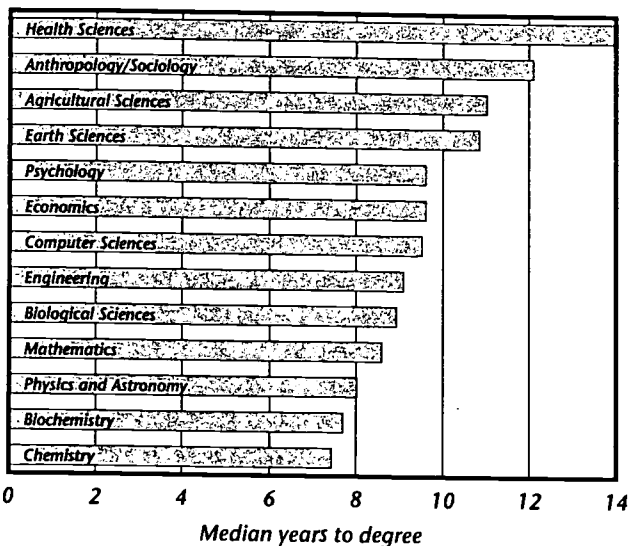 Health Sciences
Anthropology/Sociology
Agricultural Sciences
Earth Sciences
Psychology
Economics
Computer Sciences
Engineering
Biological Sciences
Mathematics
Physics and Astronomy
Biochemistry
Chemistry
0 2 4 6 8 10 12 14
Median years to degree